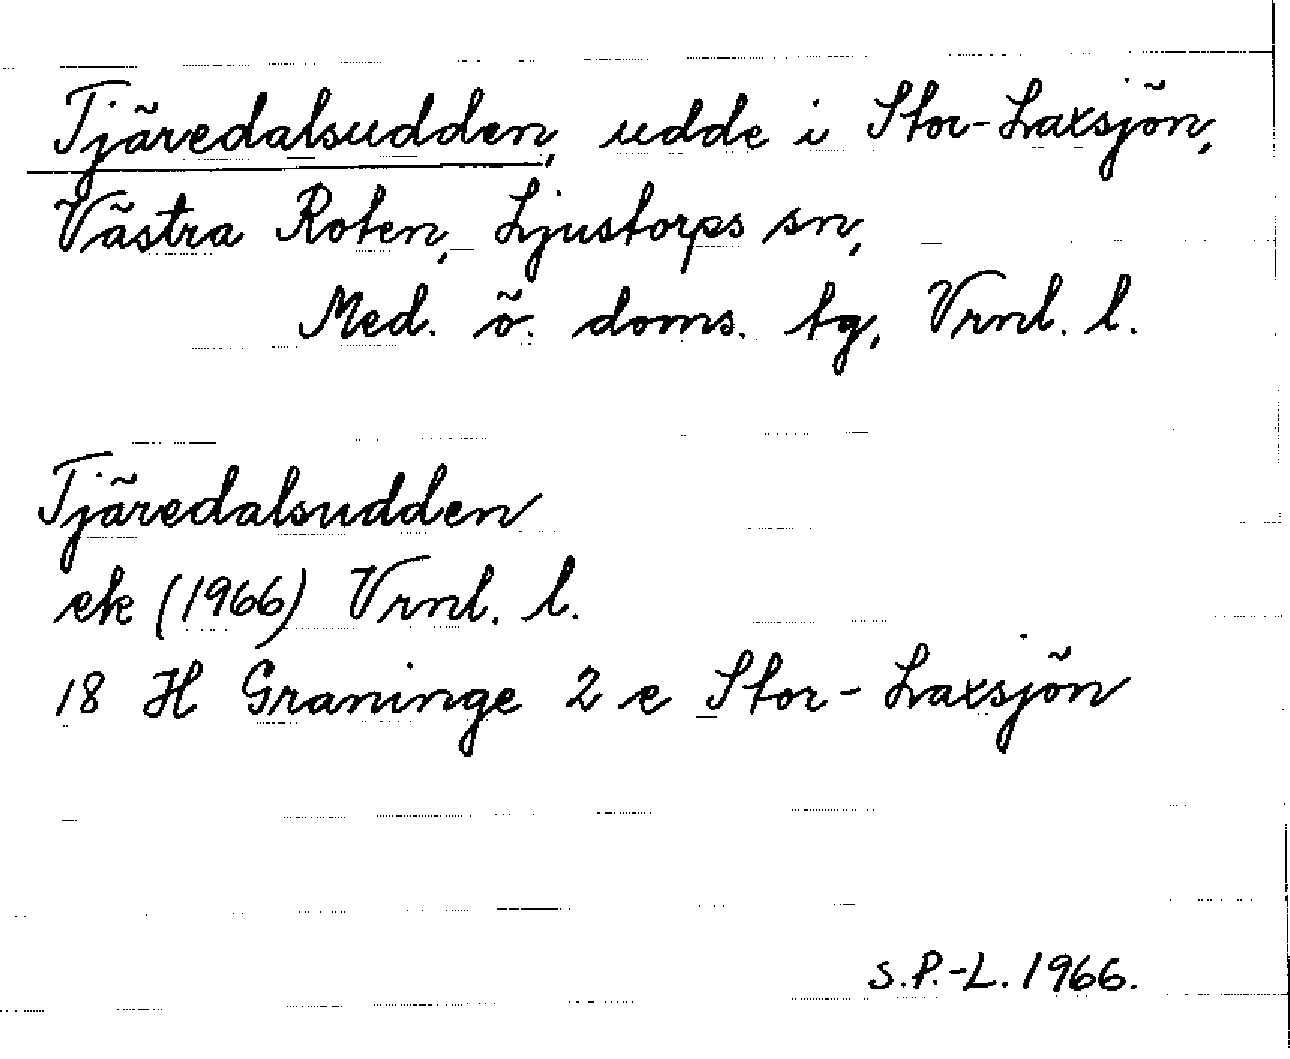 Tjäredalsudden, udde i Stor-Laxsjön,
Västra Roten, Ljustorps sn,
Med. ö. doms. tg, Vrnl. l.
Tjäredalsudden
ek (1966) Vrnl. l.
18 H Graninge 2 e Stor-Laxsjön
S.P.-L. 1966.